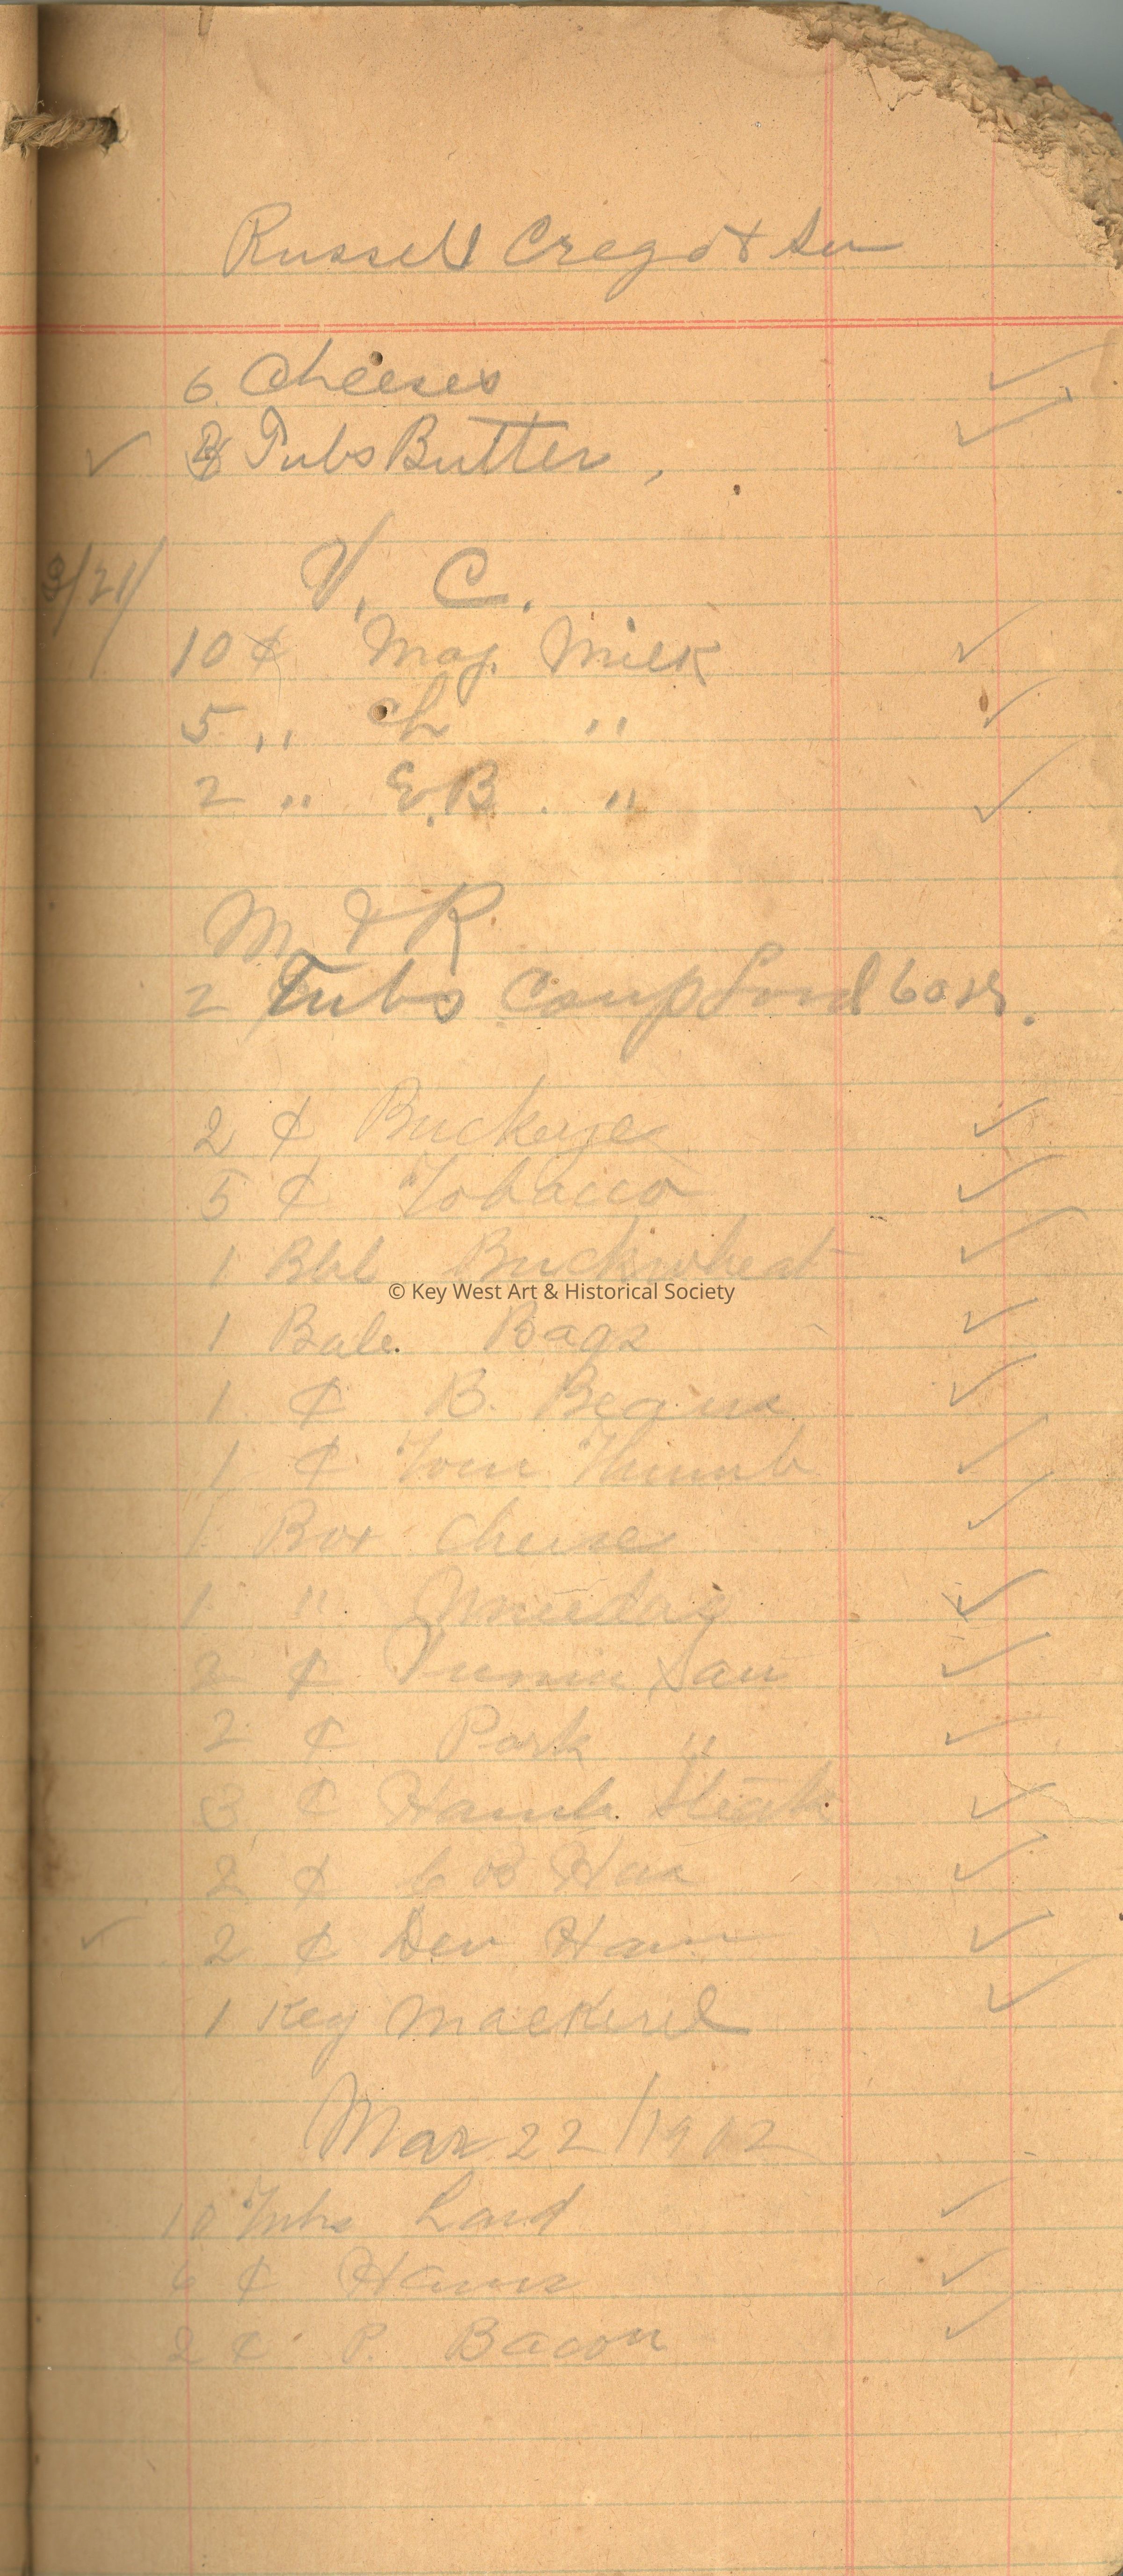 Russell Crego & Son
6 Cheeses
Tubs Butter,
3/21/ V. C.
10 ¢ Mag. Milk
5 " Ch "
2 " E.B. "
M & R
2 Tubs Comp Lard 60 lbs.
2 ¢ Buckeye
5 ¢ Tobacco
1 Bbl Buckwheat
1 Bale. Bags
1 ¢ B. Beans
1 ¢ Tom Thumb
1 Box Cheese
1 "
2 ¢ Sau
2 ¢ Pork "
3 ¢ Hamb. Steak
2 ¢
2 ¢ Dev Ham
1 Keg Mackerel
Mar 22/1902
10 Tubs Lard
6 ¢ Hams
2 ¢ P. Bacon
© Key West Art & Historical Society